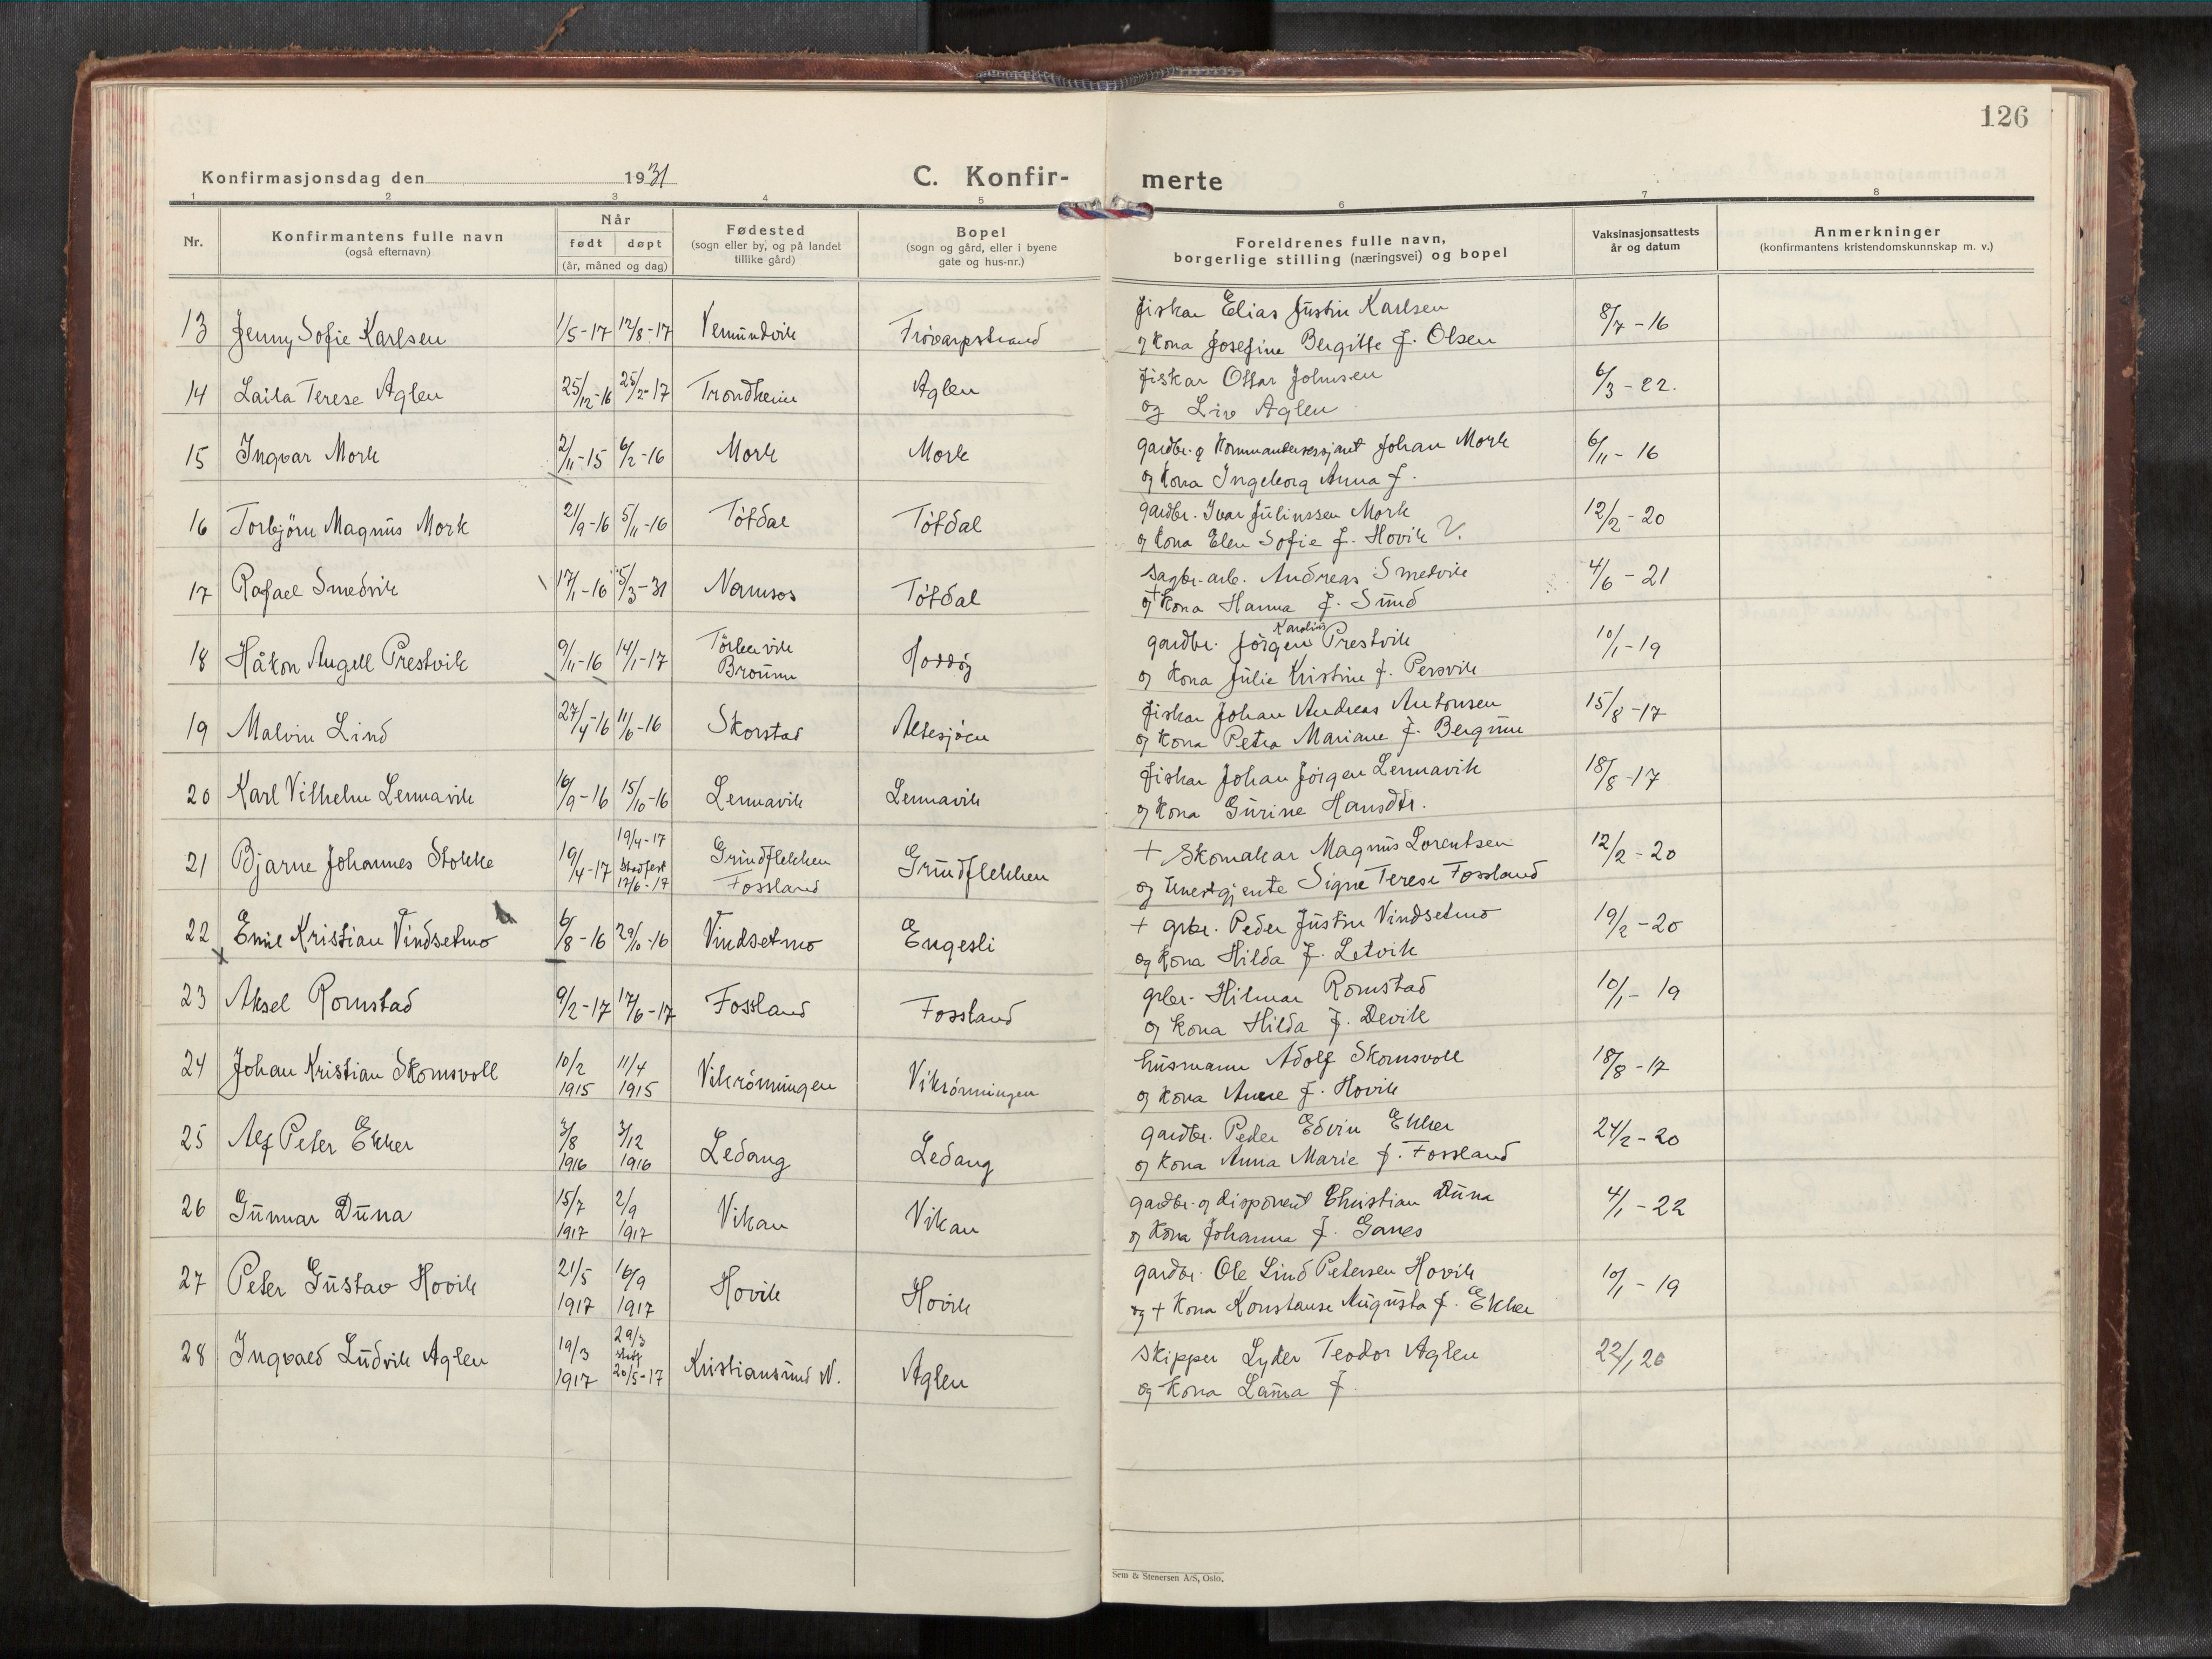 126
Konfirmasjonsdag den 1931 C. Konfir- merte
1 2 3 4 5 6 7 8
Nr.
Konfirmantens fulle navn
(også efternavn)
Når
født døpt
(år, måned og dag)
Fødested
(sogn eller by, og på landet
tillike gård)
Bopel
(sogn og gård, eller i byene
gate og hus-nr.)
Foreldrenes fulle navn,
borgerlige stilling (næringsvei) og bopel
Vaksinasjonsattests
år og datum
Anmerkninger
(konfirmantens kristendomskunnskap m. v.)
13 Jenny Sofie Karlsen 1/5-17 12/8-17 Vemundvik Fiskar Elias Justin Karlsen 8/7-16
og kona Josefine Bergitte f. Olsen
14 Laila Terese Aglen 25/12-16 25/2-17 Trondheim Aglen Fiskar Ottar Johnsen 6/3-22.
og Liv Aglen
15 Ingvar Mork 2/11-15 6/2-16 Mork Mork gardbr. og Kommandersersjant Johan Mork 6/11-16
og kona Ingeborg Anna f.
16 Torbjörn Magnus Mork 21/9-16 5/11-16 Tötdal Tötdal gardbr. Ivar Julinssen Mork 12/2-20
og kona Elen Sofie f. Hovik V.
17 Rafael Smedvik 17/1-16 15/3-31 Namsos Tötdal sagbr. arb. Andreas Smedvik 4/6-21
og + kona Hanna f. Sund
18 Håkon Angell Prestvik 9/11-16 14/1-17 Hoddöy gardbr. Jörgen Karolius Prestvik 10/1-19
og kona Julie Kristine f. Persvik
19 Malvin Lind 27/4-16 11/6-16 Skorstad Altesjöen Fiskar Johan Andreas Antonsen 15/8-17
og kona Petra Mariane f. Bergum
20 Karl Vilhelm Lennavik 16/9-16 15/10-16 Lennavik Lennavik Fiskar Johan Jörgen Lennavik 18/8-17
og kona Gurine Hansdtr.
21 Bjarne Johannes Stokke 10/4-17 19/4-17 Stadfest 17/6-17 Grundflekken Fossland Grundflekken + Skomakar Magnus Lorentsen 12/2-20
og Signe Terese Fossland
22 Emil Kristian Vindsetmo 6/8-16 29/10-16 Vindsetmo Engesli + grbr. Peder Justin Vindsetmo 19/2-20
og kona Hilda f. Letvik
23 Aksel Romstad 9/2-17 17/6-17 Fossland Fossland grbr. Hilmar Romstad 10/1-19
og kona Hilda f. Devik
24 Johan Kristian Skomsvoll 10/2 1915 11/4 1915 Vikrönningen Vikrönningen husmann Adolf Skomsvoll 18/8-17
og kona Anne f. Hovik
25 Alf Peter Ekker 3/8 1916 3/12 1916 Ledang Ledang gardbr. Peder Edvin Ekker 24/2-20
og kona Anna Marie f. Fossland
26 Gunnar Duna 15/7 1917 2/9 1917 Vikan Vikan gardbr. og disponent Christian Duna 4/1-22
og kona Johanna f. Ganes
27 Peter Gustav Hovik 21/5 1917 16/9 1917 Hovik Hovik gardbr. Ole Lind Petersen Hovik 10/1-19
og + kona Konstanse Augusta f. Ekker
28 Ingvald Ludvik Aglen 19/3 1917 29/3 stadf 20/5-17 Kristiansund N. Aglen Skipper Lyder Teodor Aglen 22/1 20
og kona Laura f.
Sem & Stenersen A/S, Oslo.